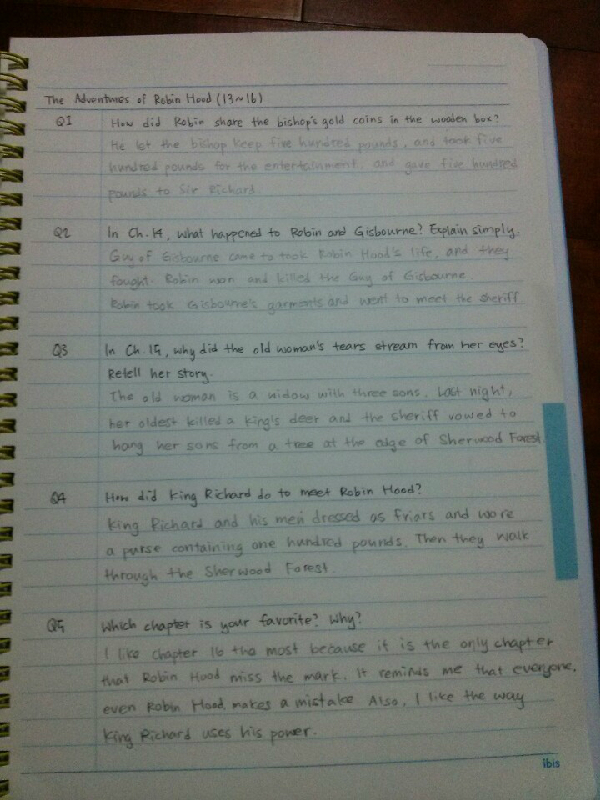 The Adventures of Robin Hood (13~16)
Q1 How did Robin share the bishop's gold coins in the wooden box?
He let the bishop keep five hundred pounds, and took five
hundred pounds for the entertainment, and gave five hundred
pounds to Sir Richard.
Q2 In Ch.14, what happened to Robin and Gisbourne? Explain simply.
Guy of Gisbourne came to took Robin Hood's life, and they
fought. Robin won and killed the Guy of Gisbourne.
Robin took Gisbourne's garments and went to meet the sheriff
Q3 In Ch.15, why did the old woman's tears stream from her eyes?
Retell her story.
The old woman is a widow with three sons. Last night,
her oldest killed a king's deer and the sheriff vowed to
hang her sons from a tree at the edge of Sherwood Forest
Q4 How did King Richard do to meet Robin Hood?
King Richard and his men dressed as friars and wore
a purse containing one hundred pounds. Then they walk
through the Sherwood Forest.
Q5 Which chapter is your favorite? Why?
I like chapter 16 the most because it is the only chapter
that Robin Hood miss the mark. It reminds me that everyone,
even Robin Hood, makes a mistake. Also, I like the way
King Richard uses his power.
ibis